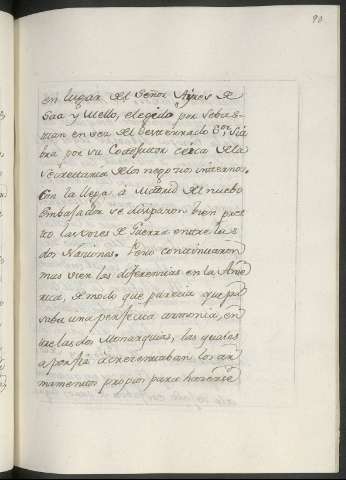 90
en lugar del Señor Ayres de
Saa y Mello, elegido por Sebas-
tian en vez del desterrado Sea-
bra por su Coadjutor cerca de la
Secretaria de los negocios internos.
Con la llega à Madrid del nuebo
Embaxador se disiparon bien pres
to las voces de Guerra entre las
dos Naciones. Pero continuaron
mas bien las diferencias en la Ame
rica, de modo que parecia que pa
saba una perfecta armonia, en
tre las dos Monarquias, las quales
a porfia acrecentaban los ar
mamentos propios para hacerse